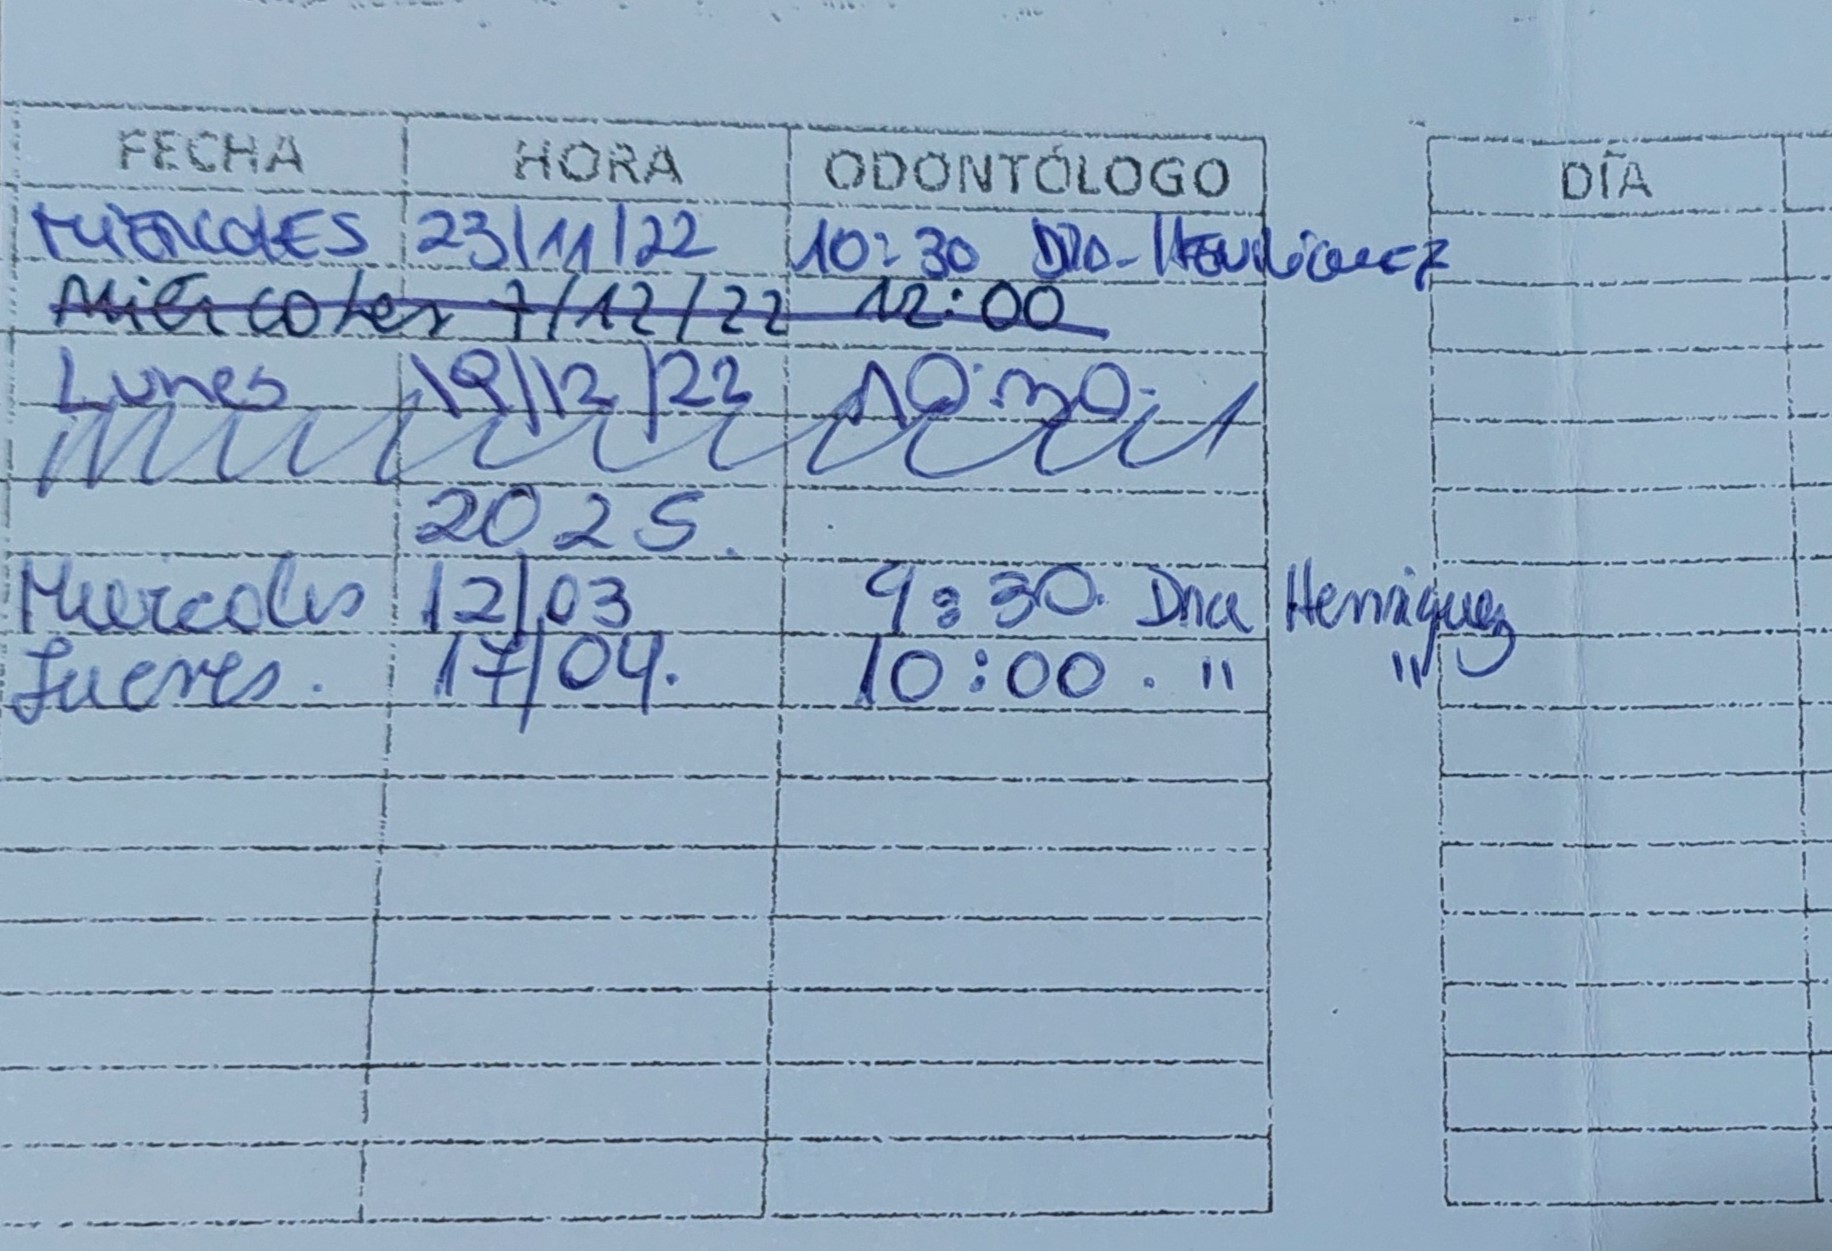 FECHA HORA ODONTÓLOGO DÍA
MIERCOLES 23/11/22 10:30 Dra. Henriquez
Miercoles 7/12/22 12:00
Lunes 19/12/22 10:30.
2025.
Miercoles 12/03 9:30. Dra Henriquez
Jueves. 17/04. 10:00. " "